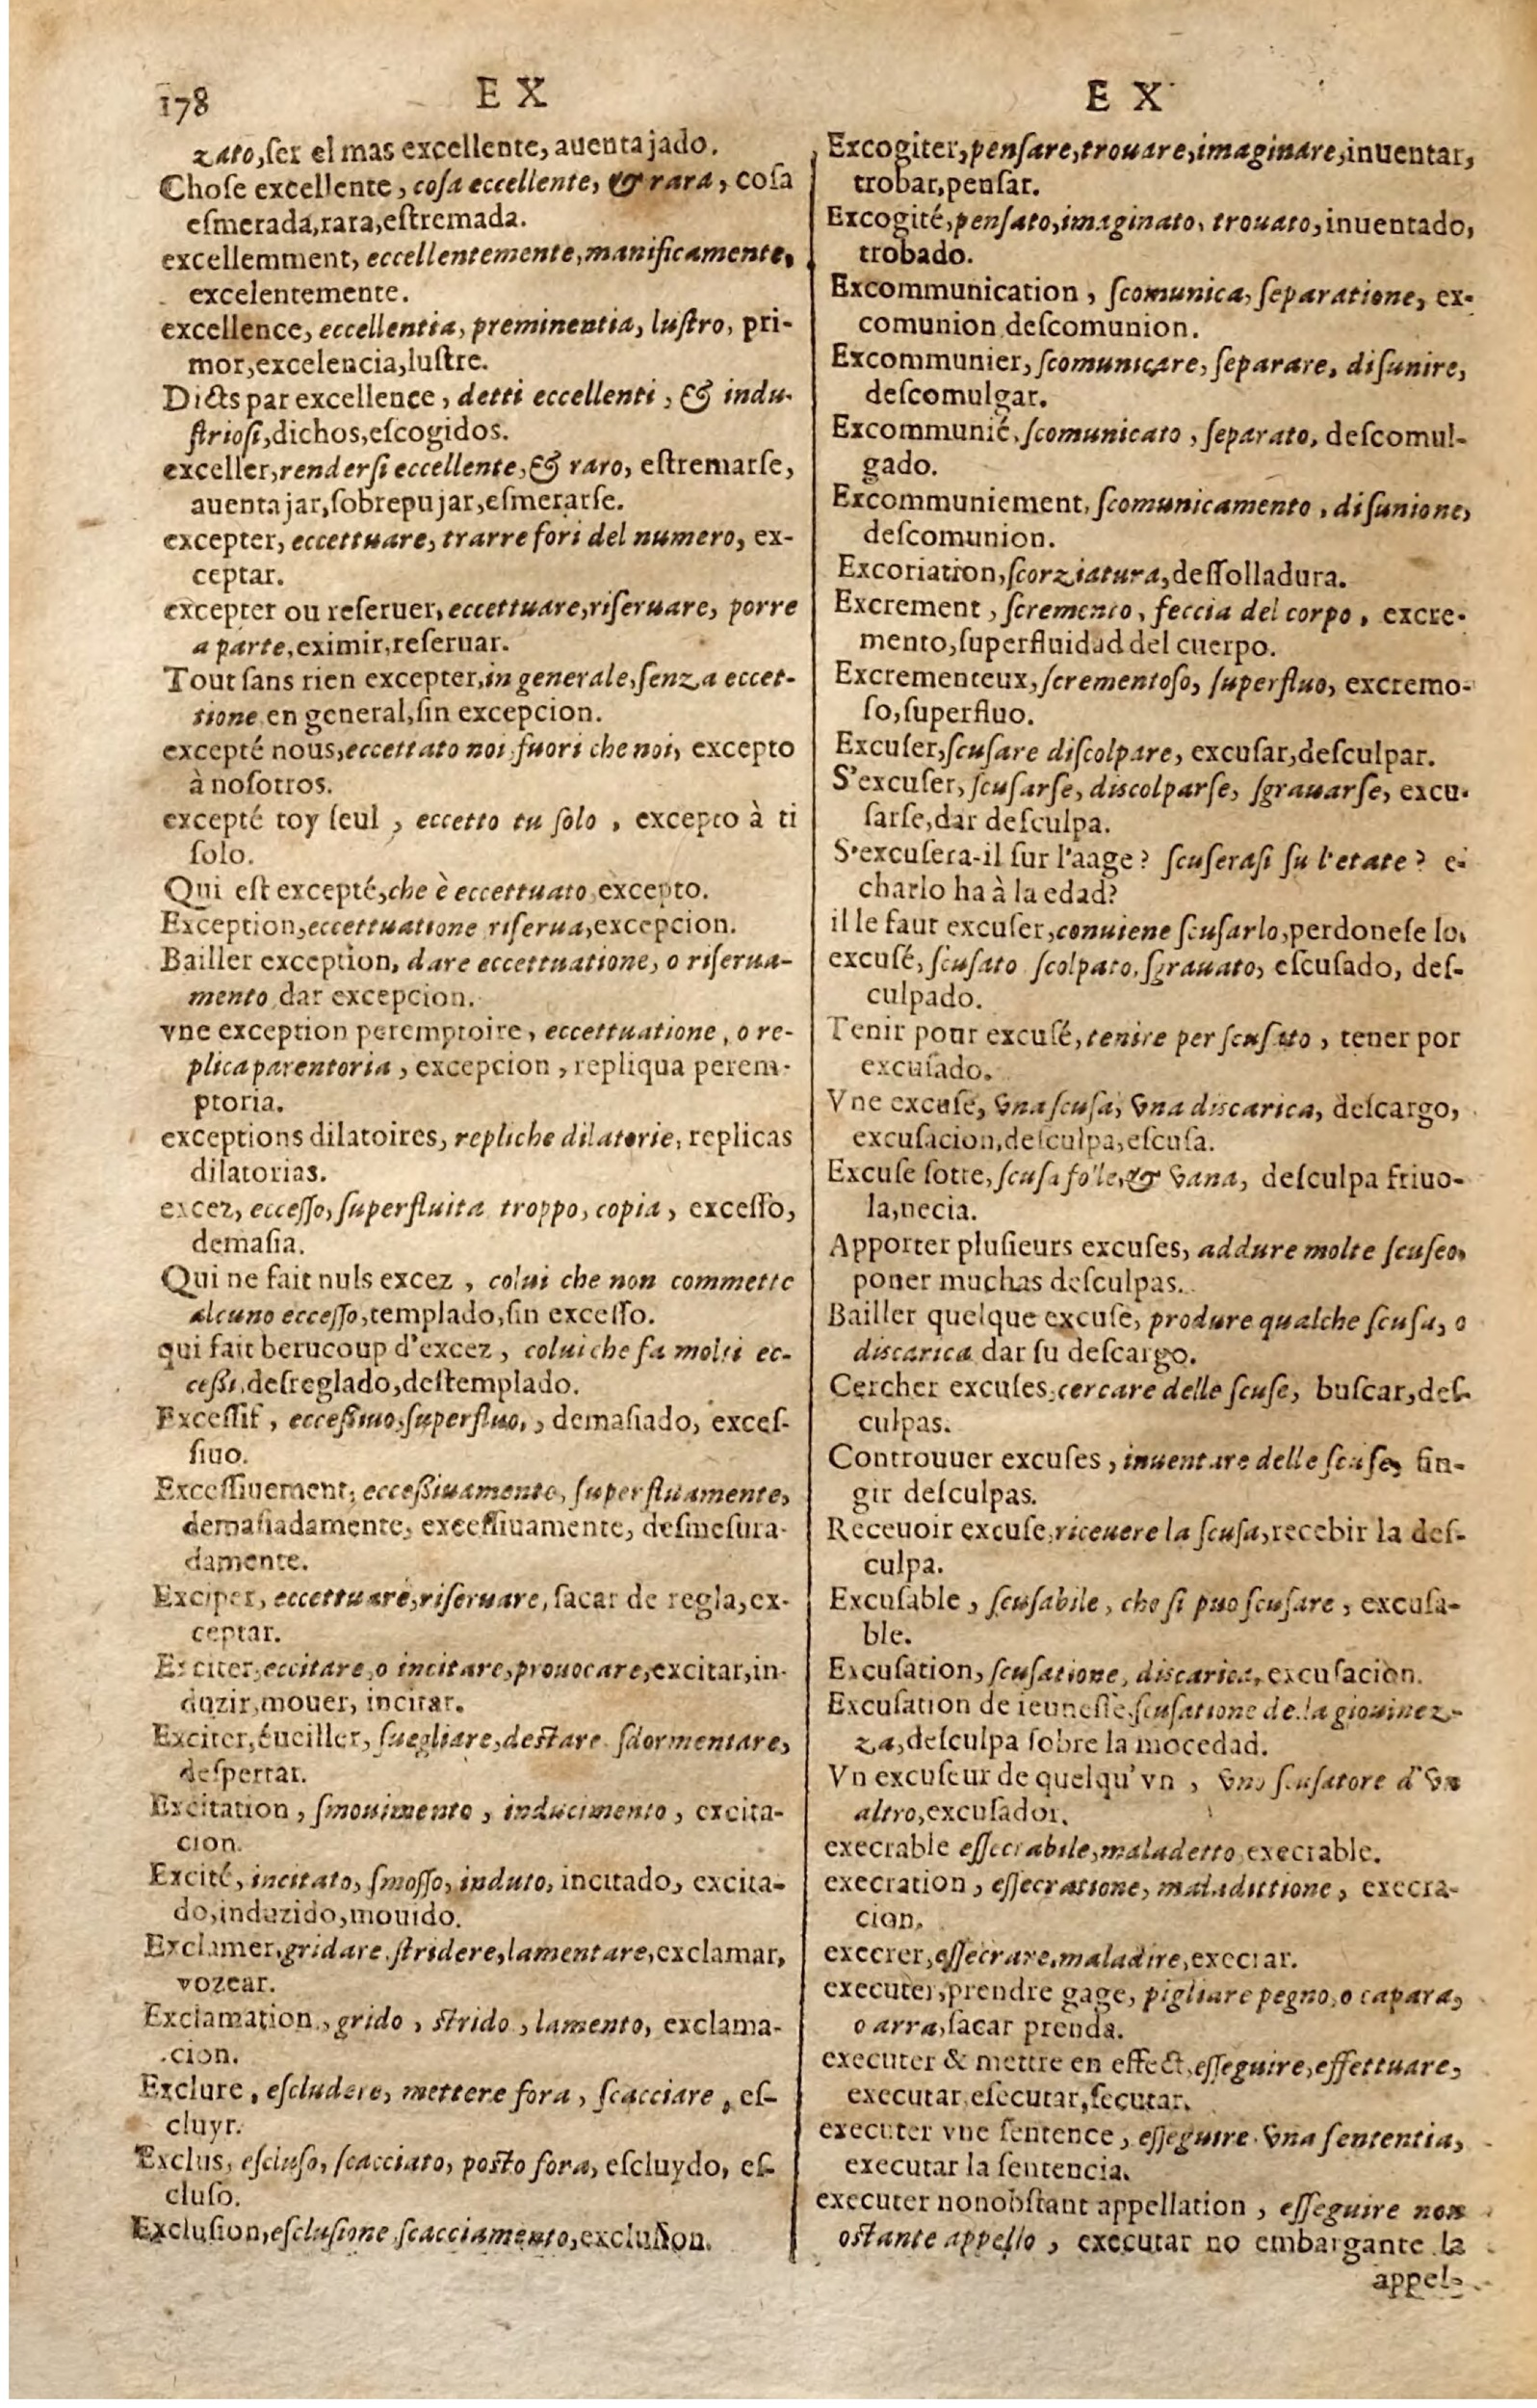 178
E X
zato,ſer el mas excellente, auentajado.
Choſe excellente, coſa eccellente, & rara, coſa
eſmerada,rara,eſtremada.
excellemment, eccellentemente,manificamente,
excelentemente.
excellence, eccellentia, preminentia, luſtro, pri-
mor,excelencia,luſtre.
Dicts par excellence, detti eccellenti, & indu-
ſtrioſi,dichos,eſcogidos.
exceller,renderſi eccellente,& raro, eſtremarſe,
auentajar,ſobrepujar,eſmerarſe.
excepter, eccettuare, trarre fori del numero, ex-
ceptar.
excepter ou reſeruer, eccettuare,riſeruare, porre
a parte,eximir,reſeruar.
Tout ſans rien excepter,in generale,ſenza eccet-
tione en general,ſin excepcion.
excepté nous,eccettato noi fuori che noi, excepto
à noſotros.
excepté toy ſeul, eccetto tu ſolo, excepto à ti
ſolo.
Qui eſt excepté,che è eccettuato excepto.
Exception,eccettuatione riſerua,excepcion.
Bailler exception, dare eccettuatione, o riſerua-
mento dar excepcion.
vne exception peremptoire, eccettuatione, o re-
plica parentoria, excepcion, repliqua perem-
ptoria.
exceptions dilatoires, repliche dilatorie, replicas
dilatorias.
excez, ecceſſo, ſuperfluita troppo, copia, exceſſo,
demaſia.
Qui ne fait nuls excez, colui che non commette
alcuno ecceſſo,templado,ſin exceſſo.
qui fait berucoup d'excez, colui che fa molti ec-
ceßi,deſreglado,deſtemplado.
Exceſſif, cceßiuo,ſuperfluo,, demaſiado, exceſ-
ſiuo.
Exceſſiuement, ecceßiuamente, ſuperfluamente,
demaſiadamente, exceſſiuamente, deſmeſura-
damente.
Exciper, eccettuare,riſeruare, ſacar de regla,ex-
ceptar.
Exciter,eccitare,o incitare,prouocare,excitar,in-
duzir,mouer, incitar.
Exciter,éueiller, ſuegliare,deſtare ſdormentare,
deſpertar.
Excitation, ſmouimento, inducimento, excita-
cion.
Excité, incitato, ſmoſſo, induto, incitado, excita-
do,induzido,mouido.
Exclamer,gridare ſtridere,lamentare,exclamar,
vozear.
Exclamation, grido, ſtrido, lamento, exclama-
cion.
Exclure, eſcludere, mettere fora, ſcacciare, eſ-
cluyr.
Exclus, eſcluſo, ſcacciato, poſto fora, eſcluydo, eſ-
cluſo.
Excluſion,eſcluſione ſcacciamento,excluſion.
E X
Excogiter,penſare,trouare,imaginare,inuentar,
trobar,penſar.
Excogité,penſato,imaginato, trouato,inuentado,
trobado.
Excommunication, ſcomunica, ſeparatione, ex-
comunion deſcomunion.
Excommunier, ſcomunicare, ſeparare, diſunire,
deſcomulgar.
Excommunié, ſcomunicato, ſeparato, deſcomul-
gado.
Excommuniement, ſcomunicamento, diſunione,
deſcomunion.
Excoriation,ſcorziatura,deſſolladura.
Excrement, ſcremento, feccia del corpo, excre-
mento,ſuperfluidad del cuerpo.
Excrementeux, ſcrementoſo, ſuperfluo, excremo-
ſo,ſuperfluo.
Excuſer,ſcuſare diſcolpare, excuſar,deſculpar.
S'excuſer, ſcuſarſe, discolparſe, ſgrauarſe, excu-
ſarſe,dar deſculpa.
S'excuſera-il ſur l'aage? ſcuſeraſi ſu l'etate? e-
charlo ha à la edad?
il le faut excuſer,conuiene ſcuſarlo,perdoneſe lo.
excuſé, ſcuſato ſcolpato, ſgrauato, eſcuſado, deſ-
culpado.
Tenir pour excuſé, tenire per ſcuſato, tener por
excuſado.
Vne excuſe, vna ſcuſa, vna discarica, deſcargo,
excuſacion,deſculpa,eſcuſa.
Excuſe ſotte, ſcuſa folle,& vana, deſculpa friuo-
la,necia.
Apporter pluſieurs excuſes, addure molte ſcuſeo,
poner muchas deſculpas.
Bailler quelque excuſe, produre qualche ſcuſa, o
discarica dar ſu deſcargo.
Cercher excuſes,cercare delle ſcuſe, buſcar,deſ-
culpas.
Controuuer excuſes, inuentare delle ſcuſe, fin-
gir deſculpas.
Receuoir excuſe,riceuere la ſcuſa,recebir la deſ-
culpa.
Excuſable, ſcuſabile, che ſi puo ſcuſare, excuſa-
ble.
Excuſation, ſcuſatione, discarica, excuſacion.
Excuſation de ieuneſſe,ſcuſatione de la giouinez-
za,deſculpa ſobre la mocedad.
Vn excuſeur de quelqu'vn, vno ſcuſatore d'vn
altro,excuſador.
execrable eſſecrabile,maladetto execrable.
execration, eſſecratione, maladittione, execra-
cion.
execrer,eſſecrare,maladire,execrar.
executer,prendre gage, pigliare pegno,o capara,
o arra,ſacar prenda.
executer & mettre en effect,eſſeguire,effettuare,
executar eſecutar,ſecutar.
executer vne ſentence, eſſeguire vna ſententia,
executar la ſentencia.
executer nonobſtant appellation, eſſeguire non
oſtante appello, executar no embargante la
appel-